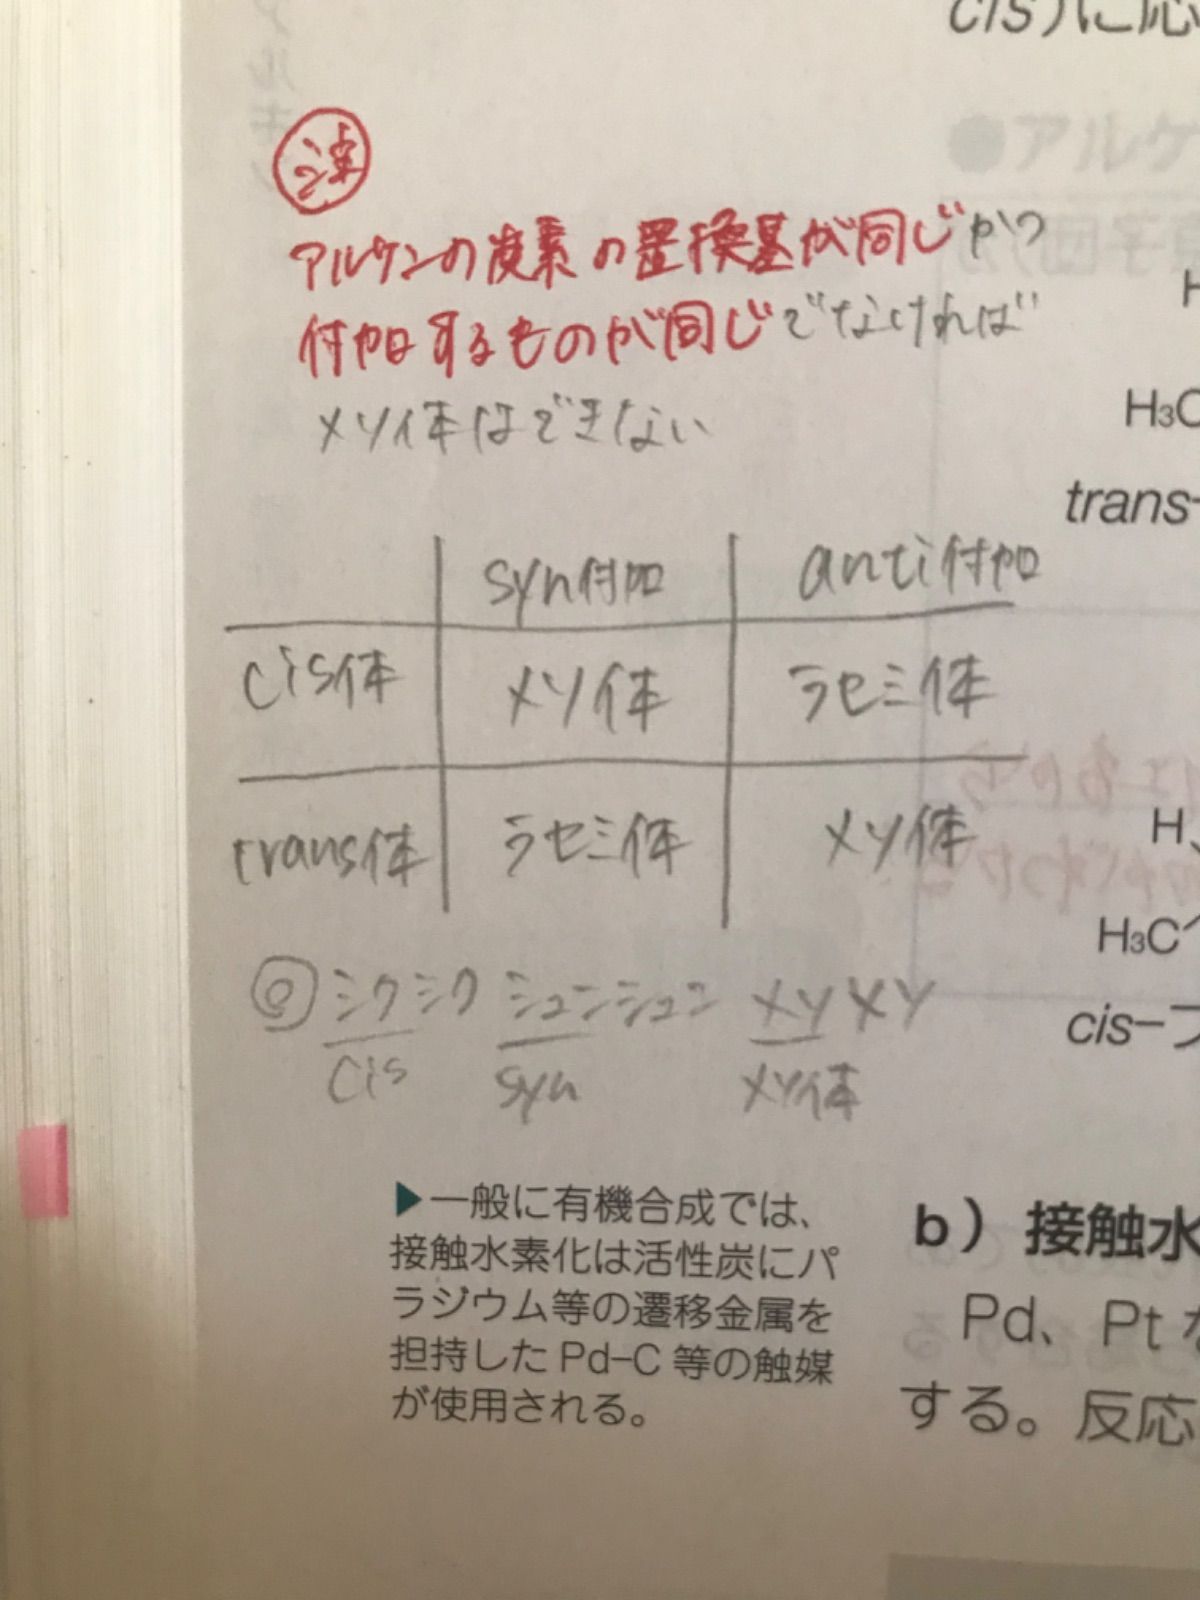 cis)に応
注
アルケンの炭素の置換基が同じかつ
付加するものが同じでなければ
メソ体はできない
syn付加 anti付加
cis体 メソ体 ラセミ体
trans体 ラセミ体 メソ体
シクシク シュンシュン メソメソ
cis syn メソ体
▶一般に有機合成では、
接触水素化は活性炭にパ
ラジウム等の遷移金属を
担持したPd-C等の触媒
が使用される。
●アルケ
H
H₃C
trans-
H、
H₃C
cis-ブ
b）接触水
Pd、Pt
する。反応